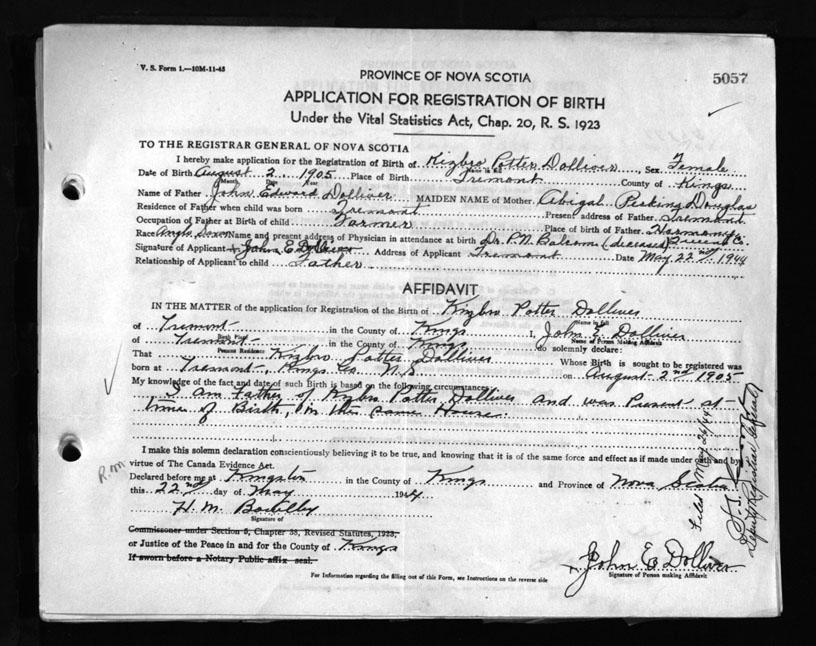 V. S. Form 1.—10M-11-43
5057
PROVINCE OF NOVA SCOTIA
APPLICATION FOR REGISTRATION OF BIRTH
Under the Vital Statistics Act, Chap. 20, R. S. 1923
TO THE REGISTRAR GENERAL OF NOVA SCOTIA
I hereby make application for the Registration of Birth of Kizbro Potter Dolliver, Sex Female
Name in full
Date of Birth August 2. 1905 Place of Birth Tremont County of Kings
Month Day Year
Name of Father John Edward Dolliver MAIDEN NAME of Mother Abigal Douglas
Residence of Father when child was born Tremont Present address of Father Tremont
Occupation of Father at Birth of child Farmer Place of birth of Father Harmony Queens Co.
Race Anglo Saxon Name and present address of Physician in attendance at birth Dr. P.N. Balcom (deceased)
Signature of Applicant John E Dolliver Address of Applicant Tremont Date May 22nd. 1944
Relationship of Applicant to child Father
AFFIDAVIT
IN THE MATTER of the application for Registration of the Birth of Kizbro Potter Dolliver
Name in full
of Tremont in the County of Kings I, John E. Dolliver
Birth Place
Name of Person Making Affidavit
of Tremont in the County of Kings do solemnly declare:
Present Residence
That Kizbro Potter Dolliver Whose Birth is sought to be registered was
born at Tremont, Kings Co. N.S. on August 2nd 1905
My knowledge of the fact and date of such Birth is based on the following circumstances:
I am Father of Kizbro Potter Dolliver and was Present at
time of Birth, in the same House.
I make this solemn declaration conscientiously believing it to be true, and knowing that it is of the same force and effect as if made under oath and by
virtue of The Canada Evidence Act.
Declared before me at Kingston in the County of Kings and Province of Nova Scotia
this 22nd day of May 1944
H. M.
Signature of
Commissoner under Section 5, Chapter 38, Revised Statutes, 1923,
or Justice of the Peace in and for the County of Kings
If sworn before a Notary Public affix seal.
John E Dolliver
Signature of Person making Affidavit
For Information regarding the filling out of this Form, see Instructions on the reverse side
Filed May 26/44
Deputy Registrar General